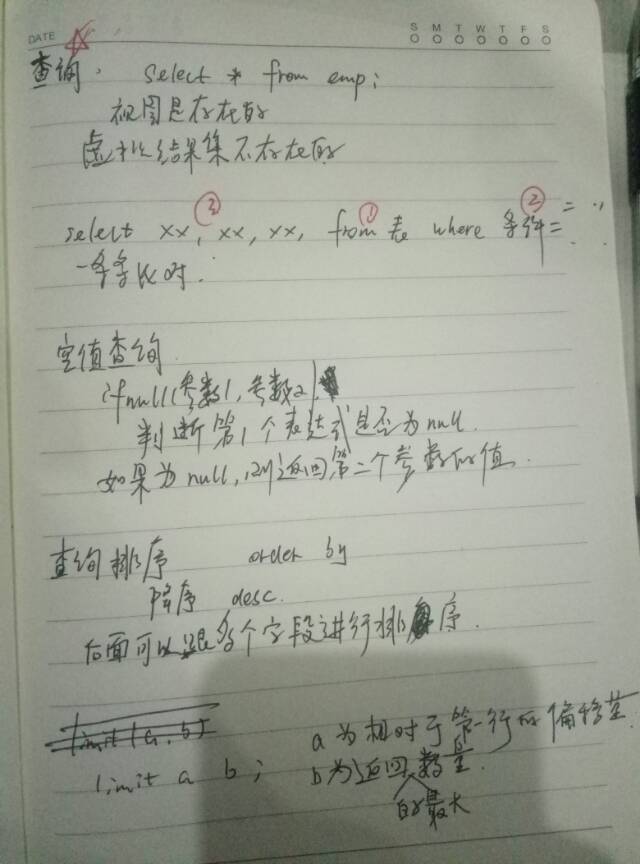 DATE
S M T W T F S
查询. select * from emp;
视图是存在的
虚拟结果集不存在的
③ ① ②
select xx, xx, xx, from 表 where 条件=
一条条比对.
空值查询
ifnull(参数1,参数2)
判断第1个表达式是否为null.
如果为null,则返回第二个参数的值.
查询排序 order by
降序 desc.
后面可以跟多个字段进行排序.
limit(a,b)
a为相对于第一行的偏移量
limit a b; b为返回数量.
的最大